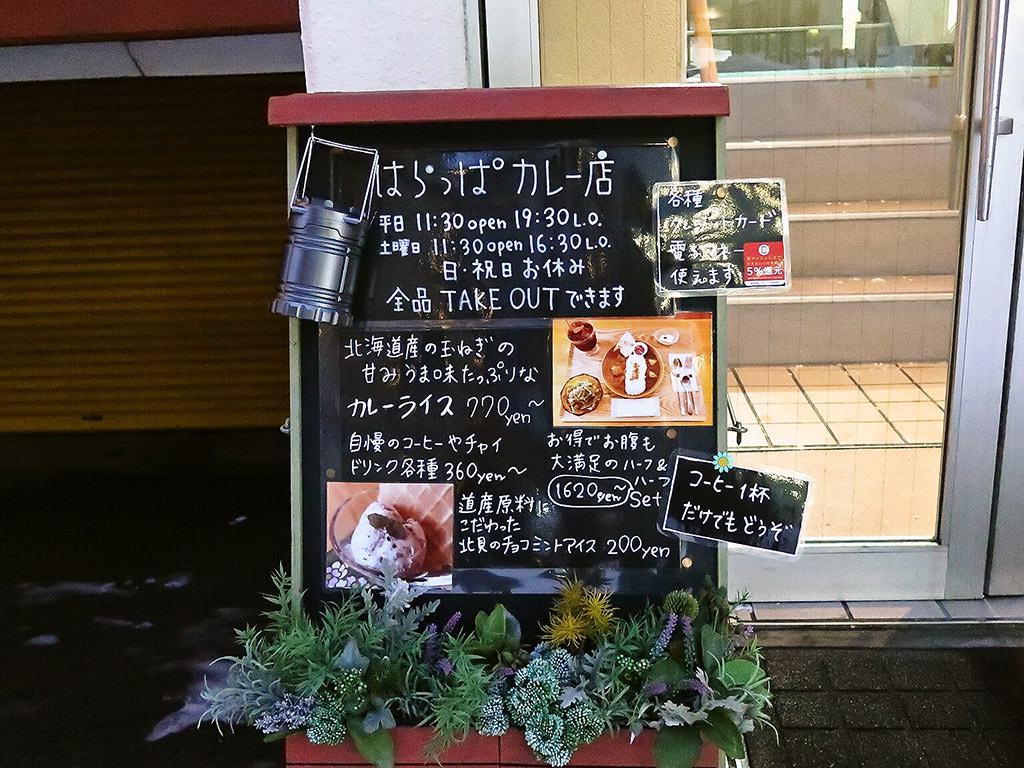 はらっぱカレー店
平日 11:30 open 19:30 L.O.
土曜日 11:30 open 16:30 L.O.
日・祝日 お休み
全品 TAKE OUT できます
各種
クレジットカード
電子マネー
使えます
5%還元
北海道産の玉ねぎの
甘みうま味たっぷりな
カレーライス 770yen〜
自慢のコーヒーやチャイ
ドリンク各種 360yen〜
お得でお腹も
大満足のハーフ&
ハーフ
1620yen〜 Set
道産原料に
こだわった
北見のチョコミントアイス 200yen
コーヒー1杯
だけでもどうぞ